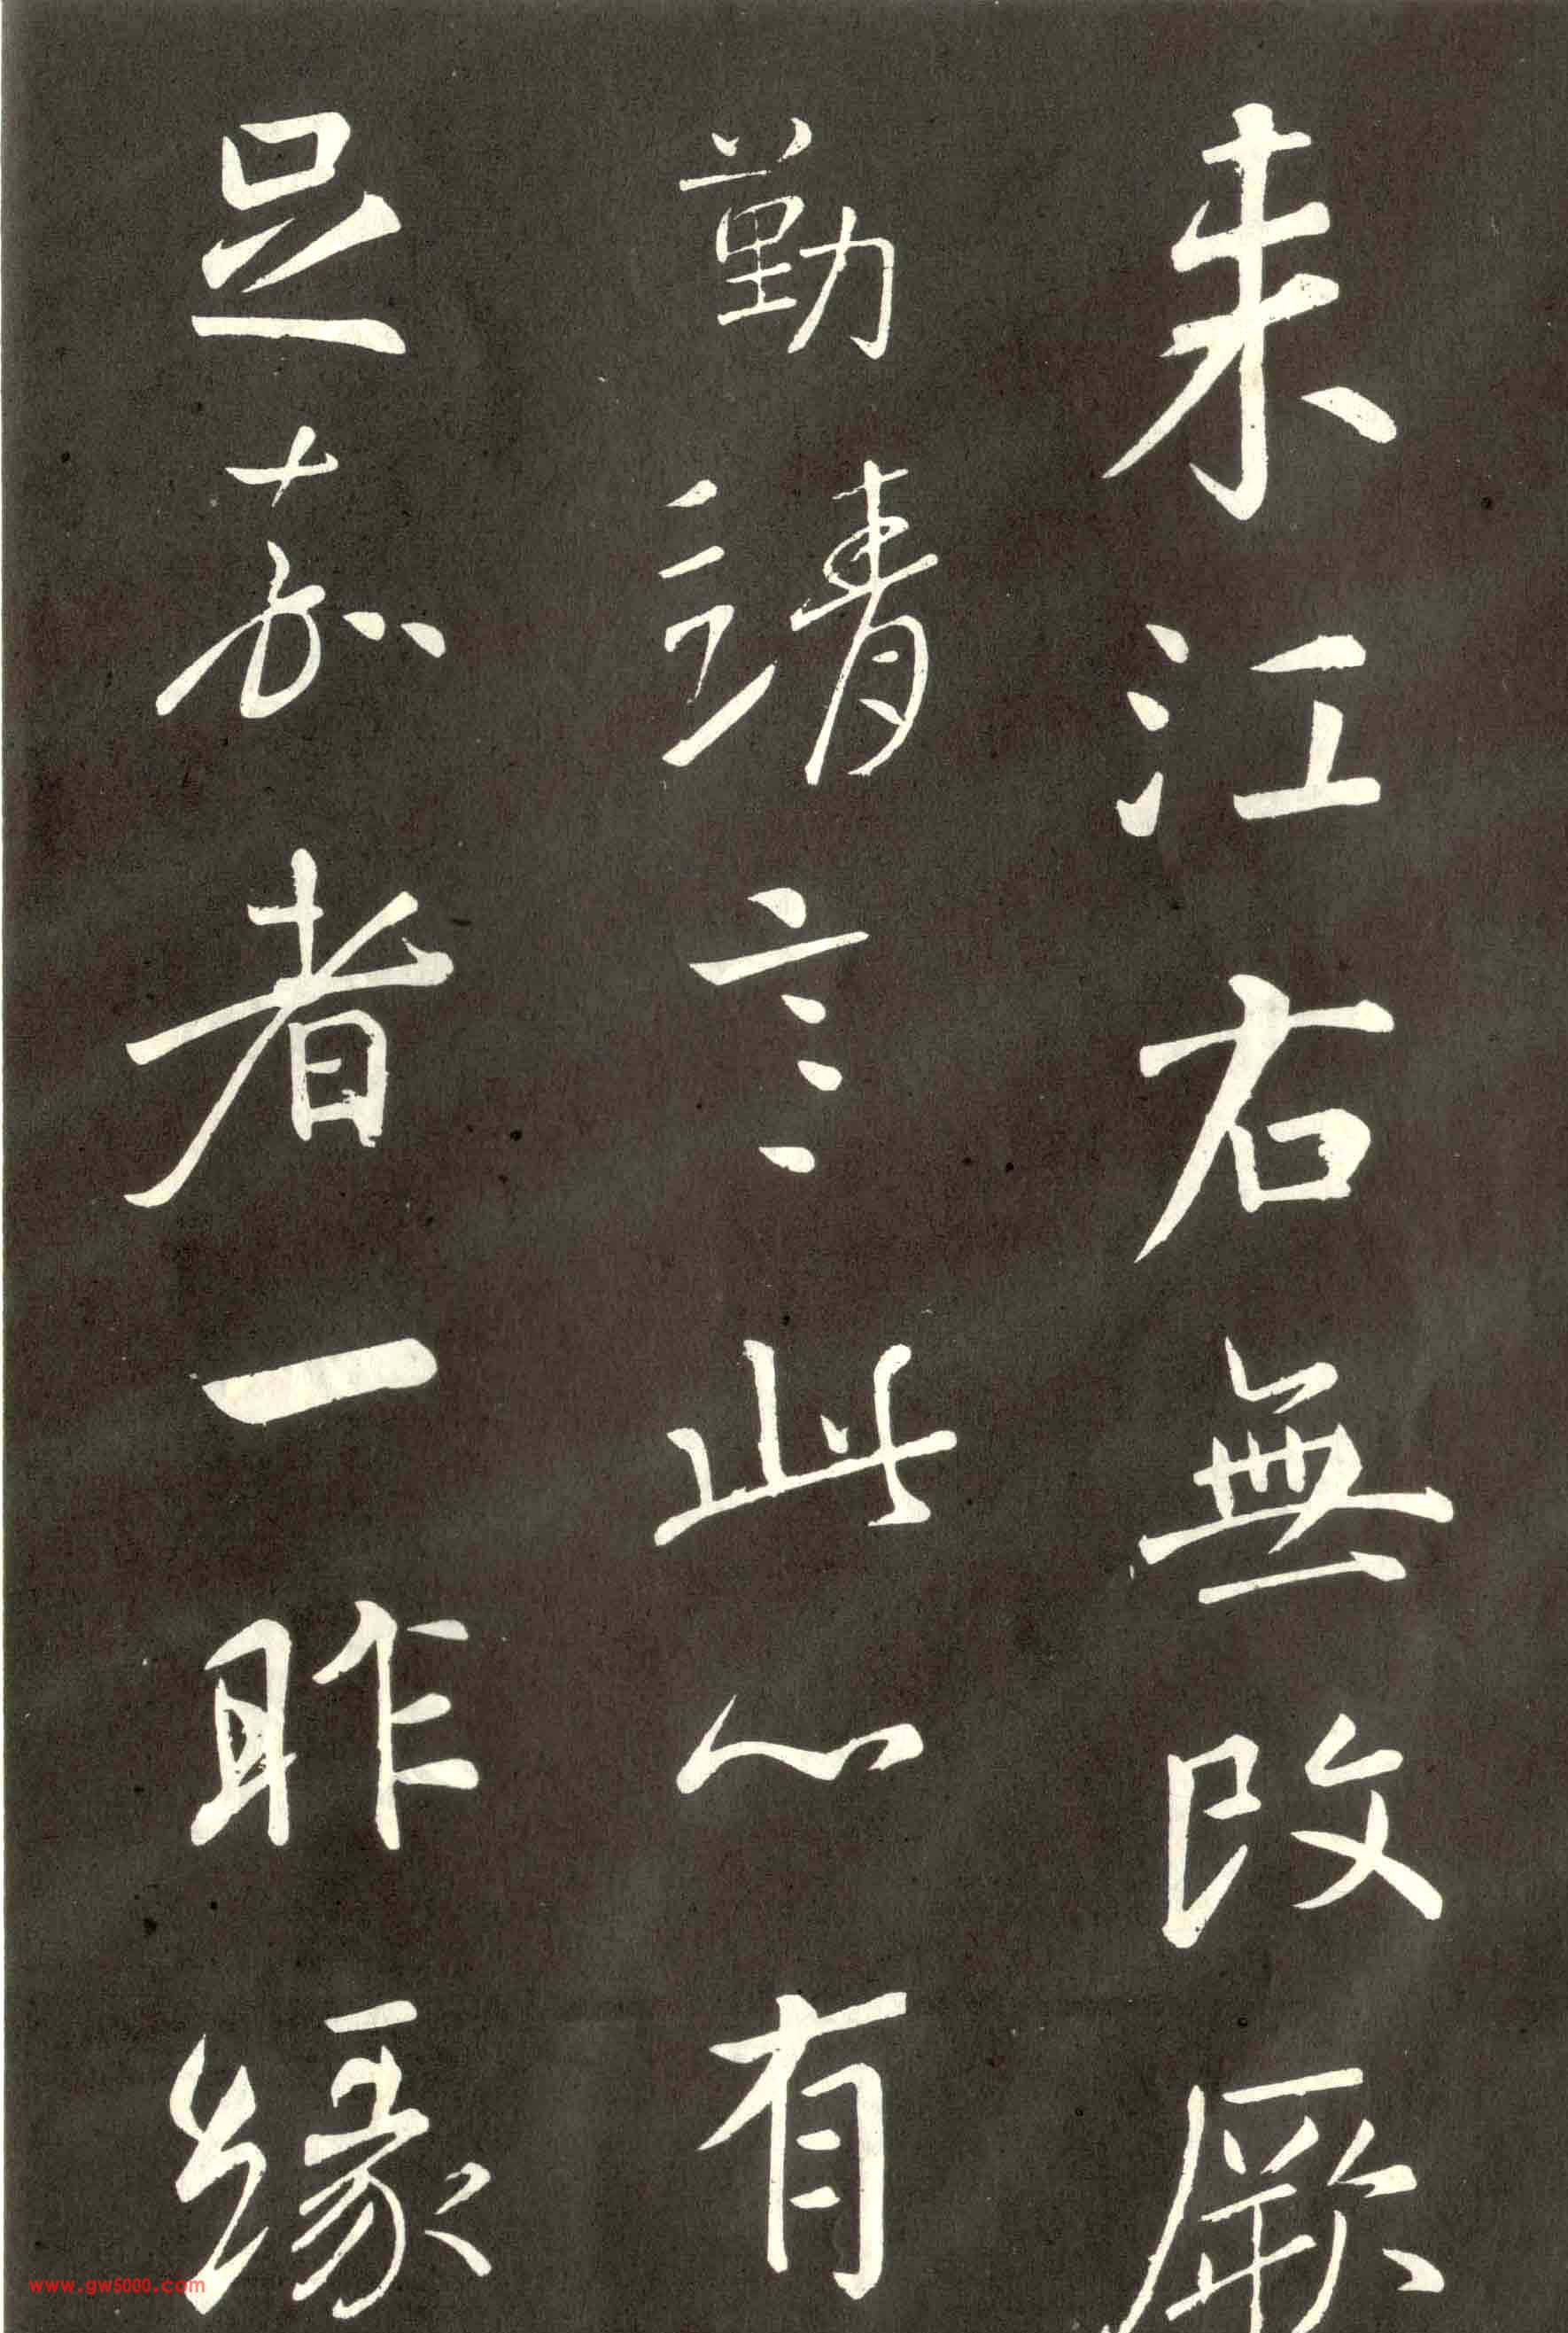 来江右無改厥
勤靖言此心有
足嘉者一昨緣
www.gw5000.com